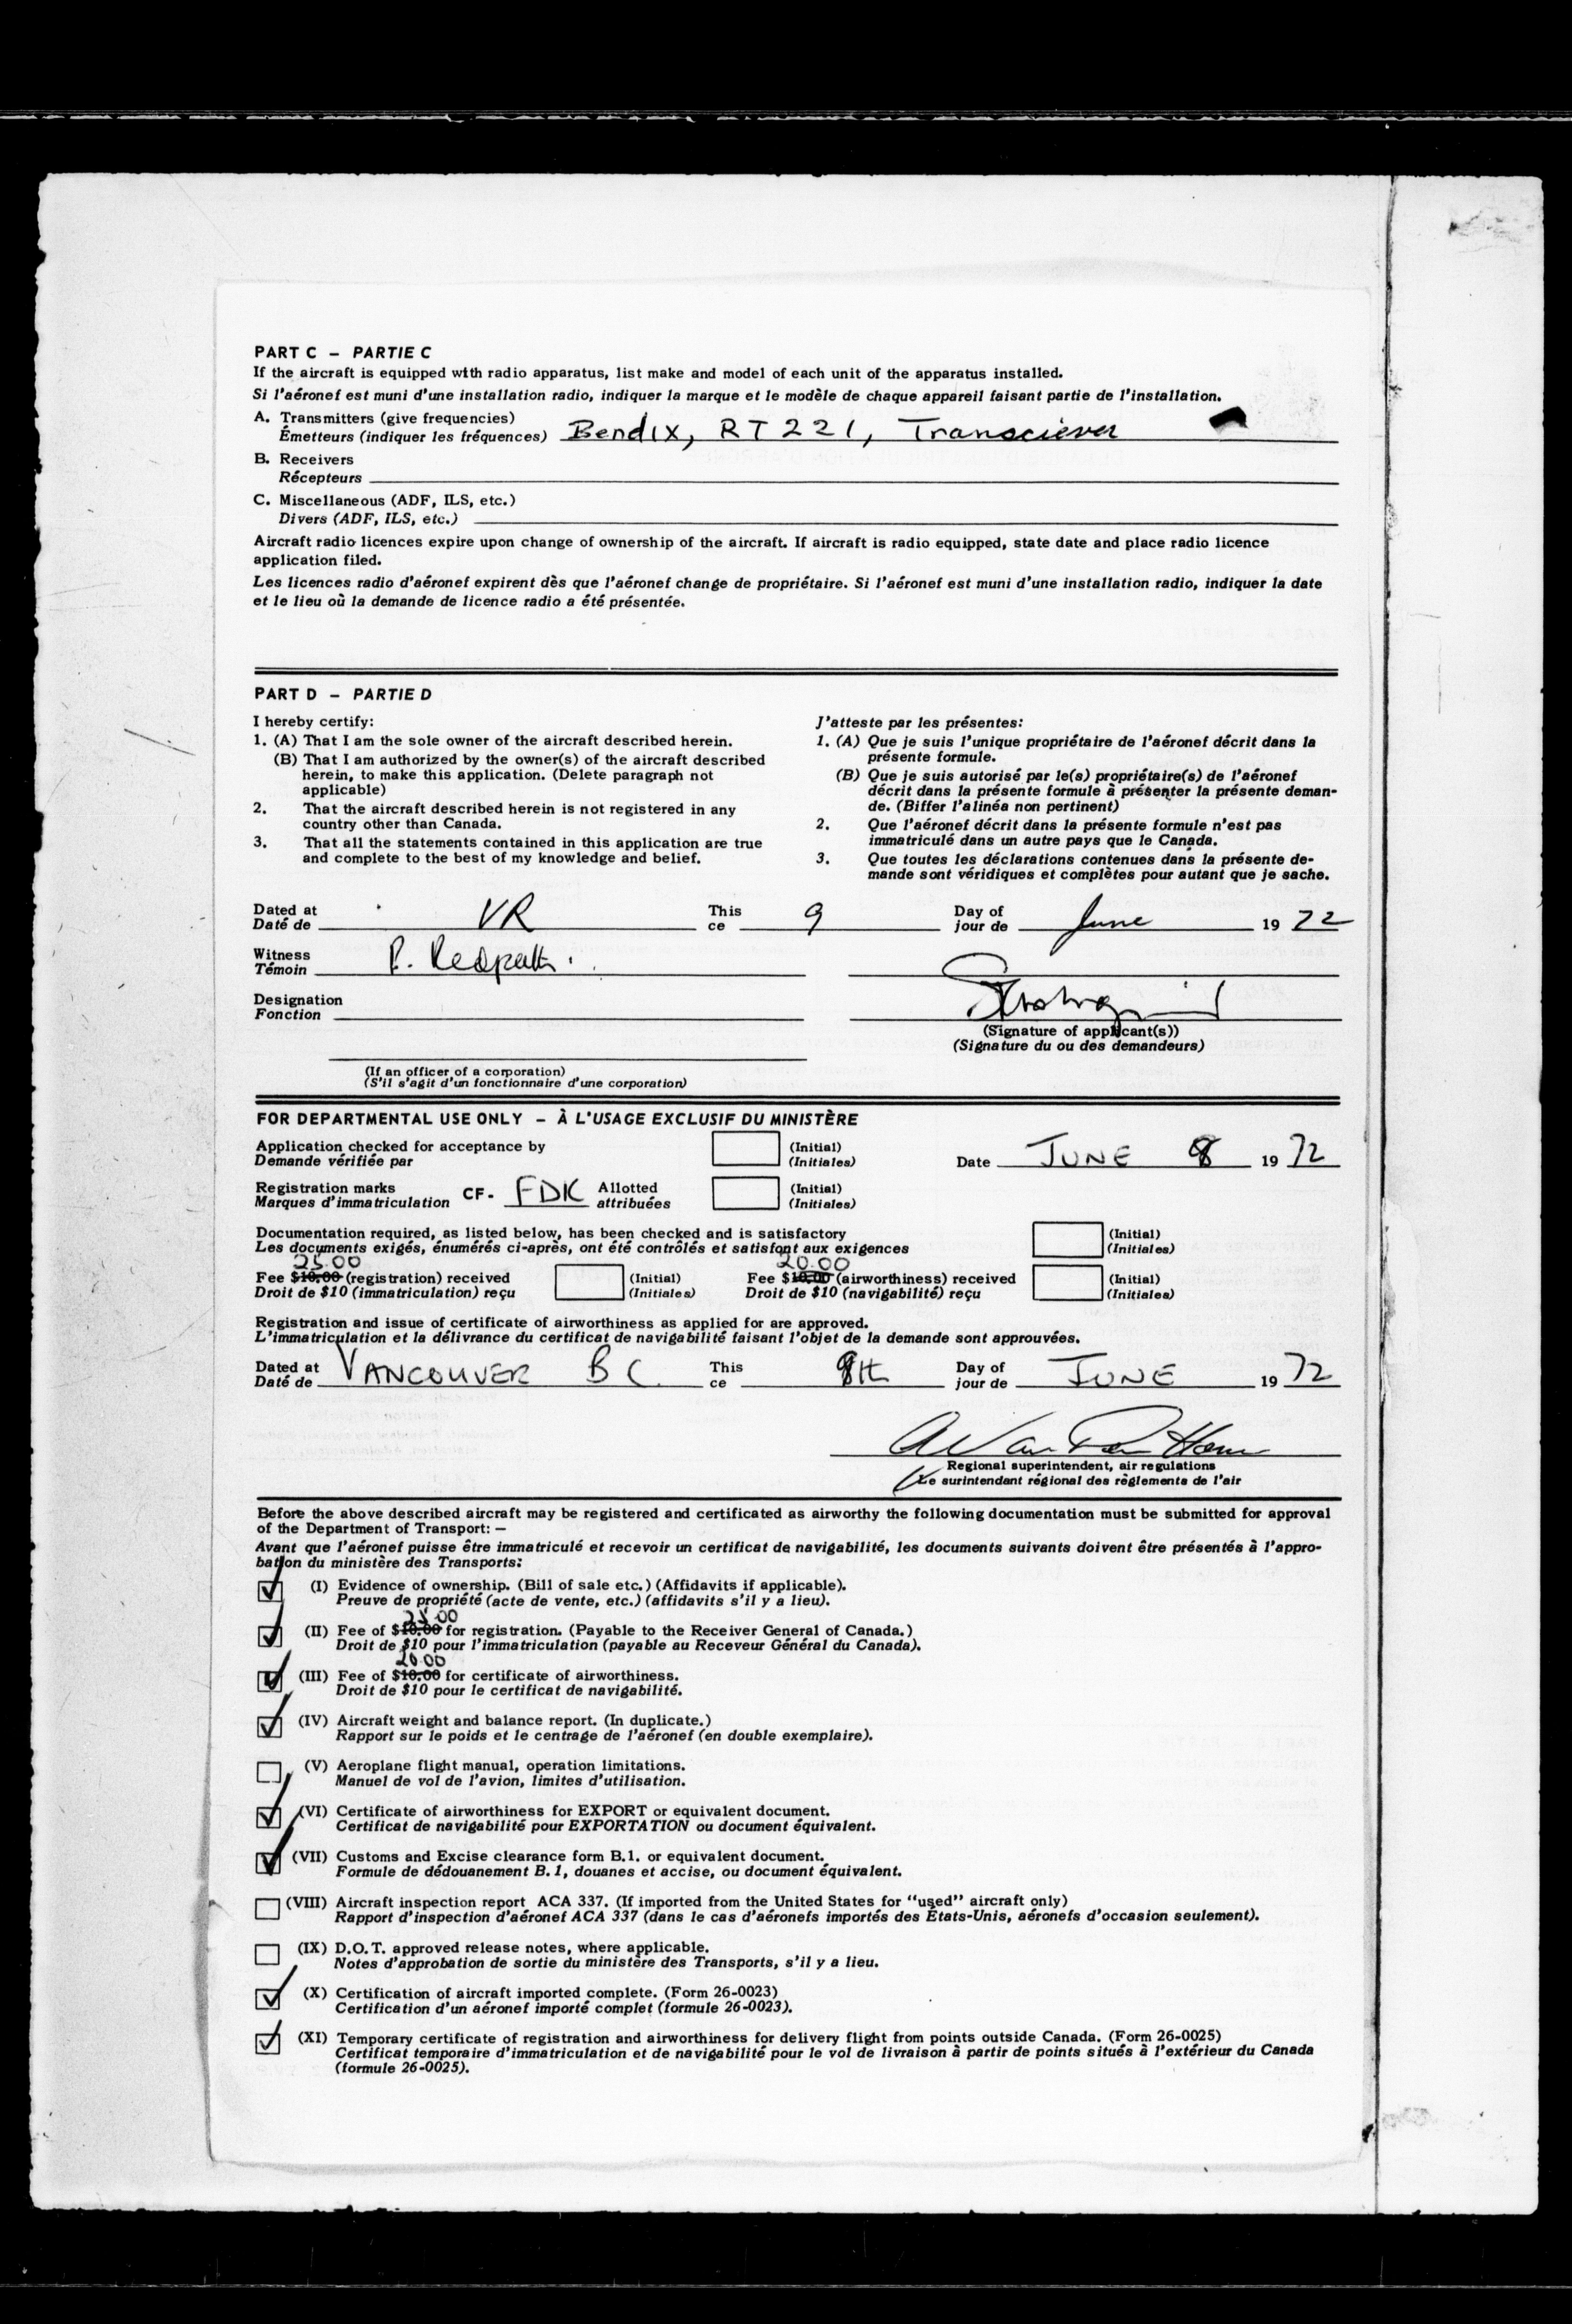 PART C – PARTIE C
If the aircraft is equipped with radio apparatus, list make and model of each unit of the apparatus installed.
Si l'aéronef est muni d'une installation radio, indiquer la marque et le modèle de chaque appareil faisant partie de l'installation.
A. Transmitters (give frequencies)
Émetteurs (indiquer les fréquences) Bendix, RT 221, Transciever
B. Receivers
Récepteurs
C. Miscellaneous (ADF, ILS, etc.)
Divers (ADF, ILS, etc.)
Aircraft radio licences expire upon change of ownership of the aircraft. If aircraft is radio equipped, state date and place radio licence
application filed.
Les licences radio d'aéronef expirent dès que l'aéronef change de propriétaire. Si l'aéronef est muni d'une installation radio, indiquer la date
et le lieu où la demande de licence radio a été présentée.
PART D – PARTIE D
I hereby certify:
1. (A) That I am the sole owner of the aircraft described herein.
(B) That I am authorized by the owner(s) of the aircraft described
herein, to make this application. (Delete paragraph not
applicable)
2. That the aircraft described herein is not registered in any
country other than Canada.
3. That all the statements contained in this application are true
and complete to the best of my knowledge and belief.
J'atteste par les présentes:
1. (A) Que je suis l'unique propriétaire de l'aéronef décrit dans la
présente formule.
(B) Que je suis autorisé par le(s) propriétaire(s) de l'aéronef
décrit dans la présente formule à présenter la présente deman-
de. (Biffer l'alinéa non pertinent)
2. Que l'aéronef décrit dans la présente formule n'est pas
immatriculé dans un autre pays que le Canada.
3. Que toutes les déclarations contenues dans la présente de-
mande sont véridiques et complètes pour autant que je sache.
Dated at VR This 9 Day of June 19 72
Daté de ce jour de
Witness P. Redpath
Témoin
Designation
Fonction
(Signature of applicant(s))
(Signature du ou des demandeurs)
(If an officer of a corporation)
(S'il s'agit d'un fonctionnaire d'une corporation)
FOR DEPARTMENTAL USE ONLY – À L'USAGE EXCLUSIF DU MINISTÈRE
Application checked for acceptance by (Initial)
Demande vérifiée par (Initiales) Date JUNE 9 19 72
Registration marks CF- FDK Allotted (Initial)
Marques d'immatriculation attribuées (Initiales)
Documentation required, as listed below, has been checked and is satisfactory (Initial)
Les documents exigés, énumérés ci-après, ont été contrôlés et satisfont aux exigences (Initiales)
25.00 20.00
Fee $10.00 (registration) received (Initial) Fee $10.00 (airworthiness) received (Initial)
Droit de $10 (immatriculation) reçu (Initiales) Droit de $10 (navigabilité) reçu (Initiales)
Registration and issue of certificate of airworthiness as applied for are approved.
L'immatriculation et la délivrance du certificat de navigabilité faisant l'objet de la demande sont approuvées.
Dated at VANCOUVER B C. This 9th Day of JUNE 19 72
Daté de ce jour de
Regional superintendent, air regulations
Le surintendant régional des règlements de l'air
Before the above described aircraft may be registered and certificated as airworthy the following documentation must be submitted for approval
of the Department of Transport: –
Avant que l'aéronef puisse être immatriculé et recevoir un certificat de navigabilité, les documents suivants doivent être présentés à l'appro-
bation du ministère des Transports:
(I) Evidence of ownership. (Bill of sale etc.) (Affidavits if applicable).
Preuve de propriété (acte de vente, etc.) (affidavits s'il y a lieu).
25.00
(II) Fee of $10.00 for registration. (Payable to the Receiver General of Canada.)
Droit de $10 pour l'immatriculation (payable au Receveur Général du Canada).
20.00
(III) Fee of $10.00 for certificate of airworthiness.
Droit de $10 pour le certificat de navigabilité.
(IV) Aircraft weight and balance report. (In duplicate.)
Rapport sur le poids et le centrage de l'aéronef (en double exemplaire).
(V) Aeroplane flight manual, operation limitations.
Manuel de vol de l'avion, limites d'utilisation.
(VI) Certificate of airworthiness for EXPORT or equivalent document.
Certificat de navigabilité pour EXPORTATION ou document équivalent.
(VII) Customs and Excise clearance form B.1. or equivalent document.
Formule de dédouanement B.1, douanes et accise, ou document équivalent.
(VIII) Aircraft inspection report ACA 337. (If imported from the United States for "used" aircraft only)
Rapport d'inspection d'aéronef ACA 337 (dans le cas d'aéronefs importés des États-Unis, aéronefs d'occasion seulement).
(IX) D.O.T. approved release notes, where applicable.
Notes d'approbation de sortie du ministère des Transports, s'il y a lieu.
(X) Certification of aircraft imported complete. (Form 26-0023)
Certification d'un aéronef importé complet (formule 26-0023).
(XI) Temporary certificate of registration and airworthiness for delivery flight from points outside Canada. (Form 26-0025)
Certificat temporaire d'immatriculation et de navigabilité pour le vol de livraison à partir de points situés à l'extérieur du Canada
(formule 26-0025).